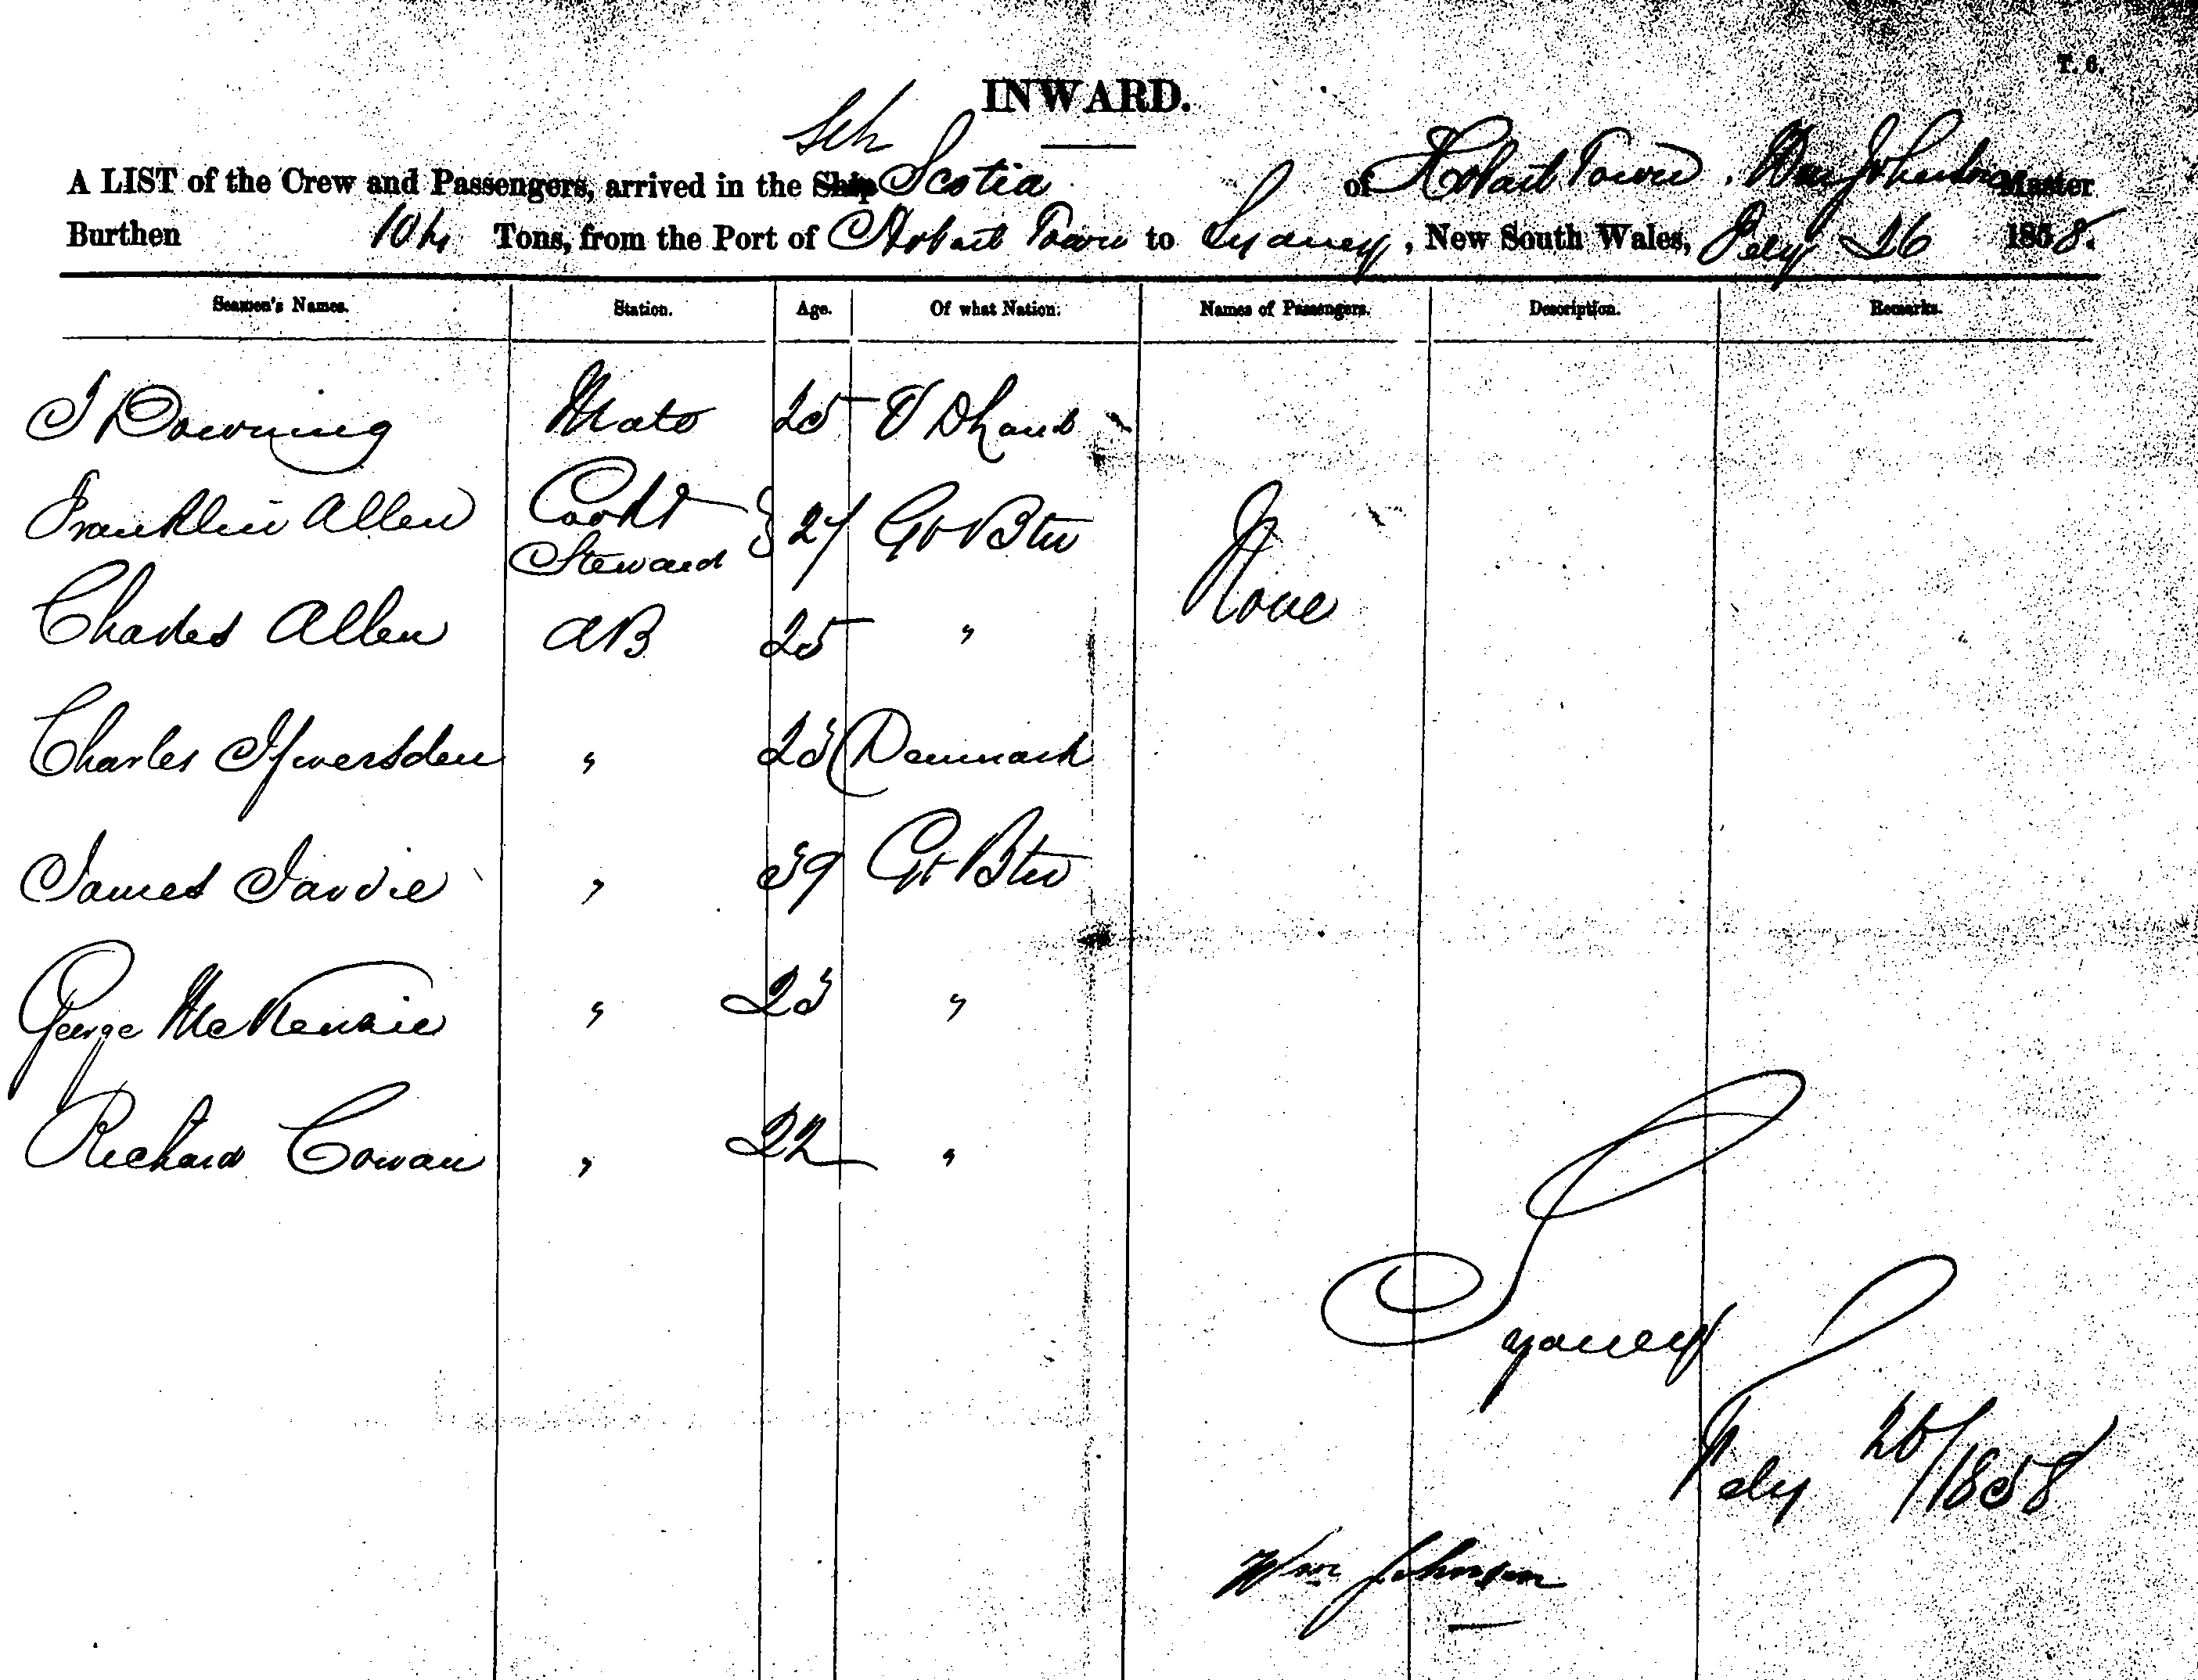 T. 6.
INWARD.
Sch
A LIST of the Crew and Passengers, arrived in the Ship Scotia of Hobart Town, Wm Johnson Master
Burthen 104 Tons, from the Port of Hobart Town to Sydney, New South Wales, Feby 26 1858.
Seamen's Names. Station. Age. Of what Nation. Names of Passengers. Description. Remarks.
J Downing Mate 25 V D Land
Franklin Allen Cook & Steward 27 Gt Btn
None
Charles Allen AB 25 "
Charles Ifwersden " 23 Denmark
James Jardie " 39 Gt Btn
George McKenzie " 23 "
Richard Cowan " 22 "
Sydney
Feby 26/1858
Wm Johnson